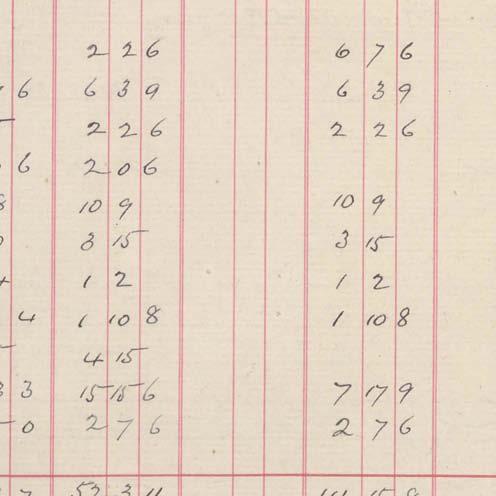 2 2 6 6 7 6
6 6 3 9 6 3 9
2 2 6 2 2 6
6 2 0 6
10 9 10 9
3 15 3 15
1 2 1 2
4 1 10 8 1 10 8
4 15
3 15 15 6 7 17 9
0 2 7 6 2 7 6